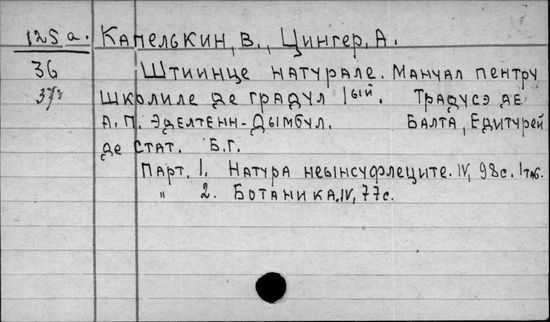 125 а. Капелькин, В., Цингер, А.
36 Штиинце натурале. Мануал пентру
37 школиле де градул Iый. Традусэ де
А.П. Эделтенн-Дымбул. Балта, Едитурей
де стат. Б.Г.
Парт. 1. Натура неынсуфлеците. IV, 98с. 1 таб.
" 2. Ботаника. IV, 77с.